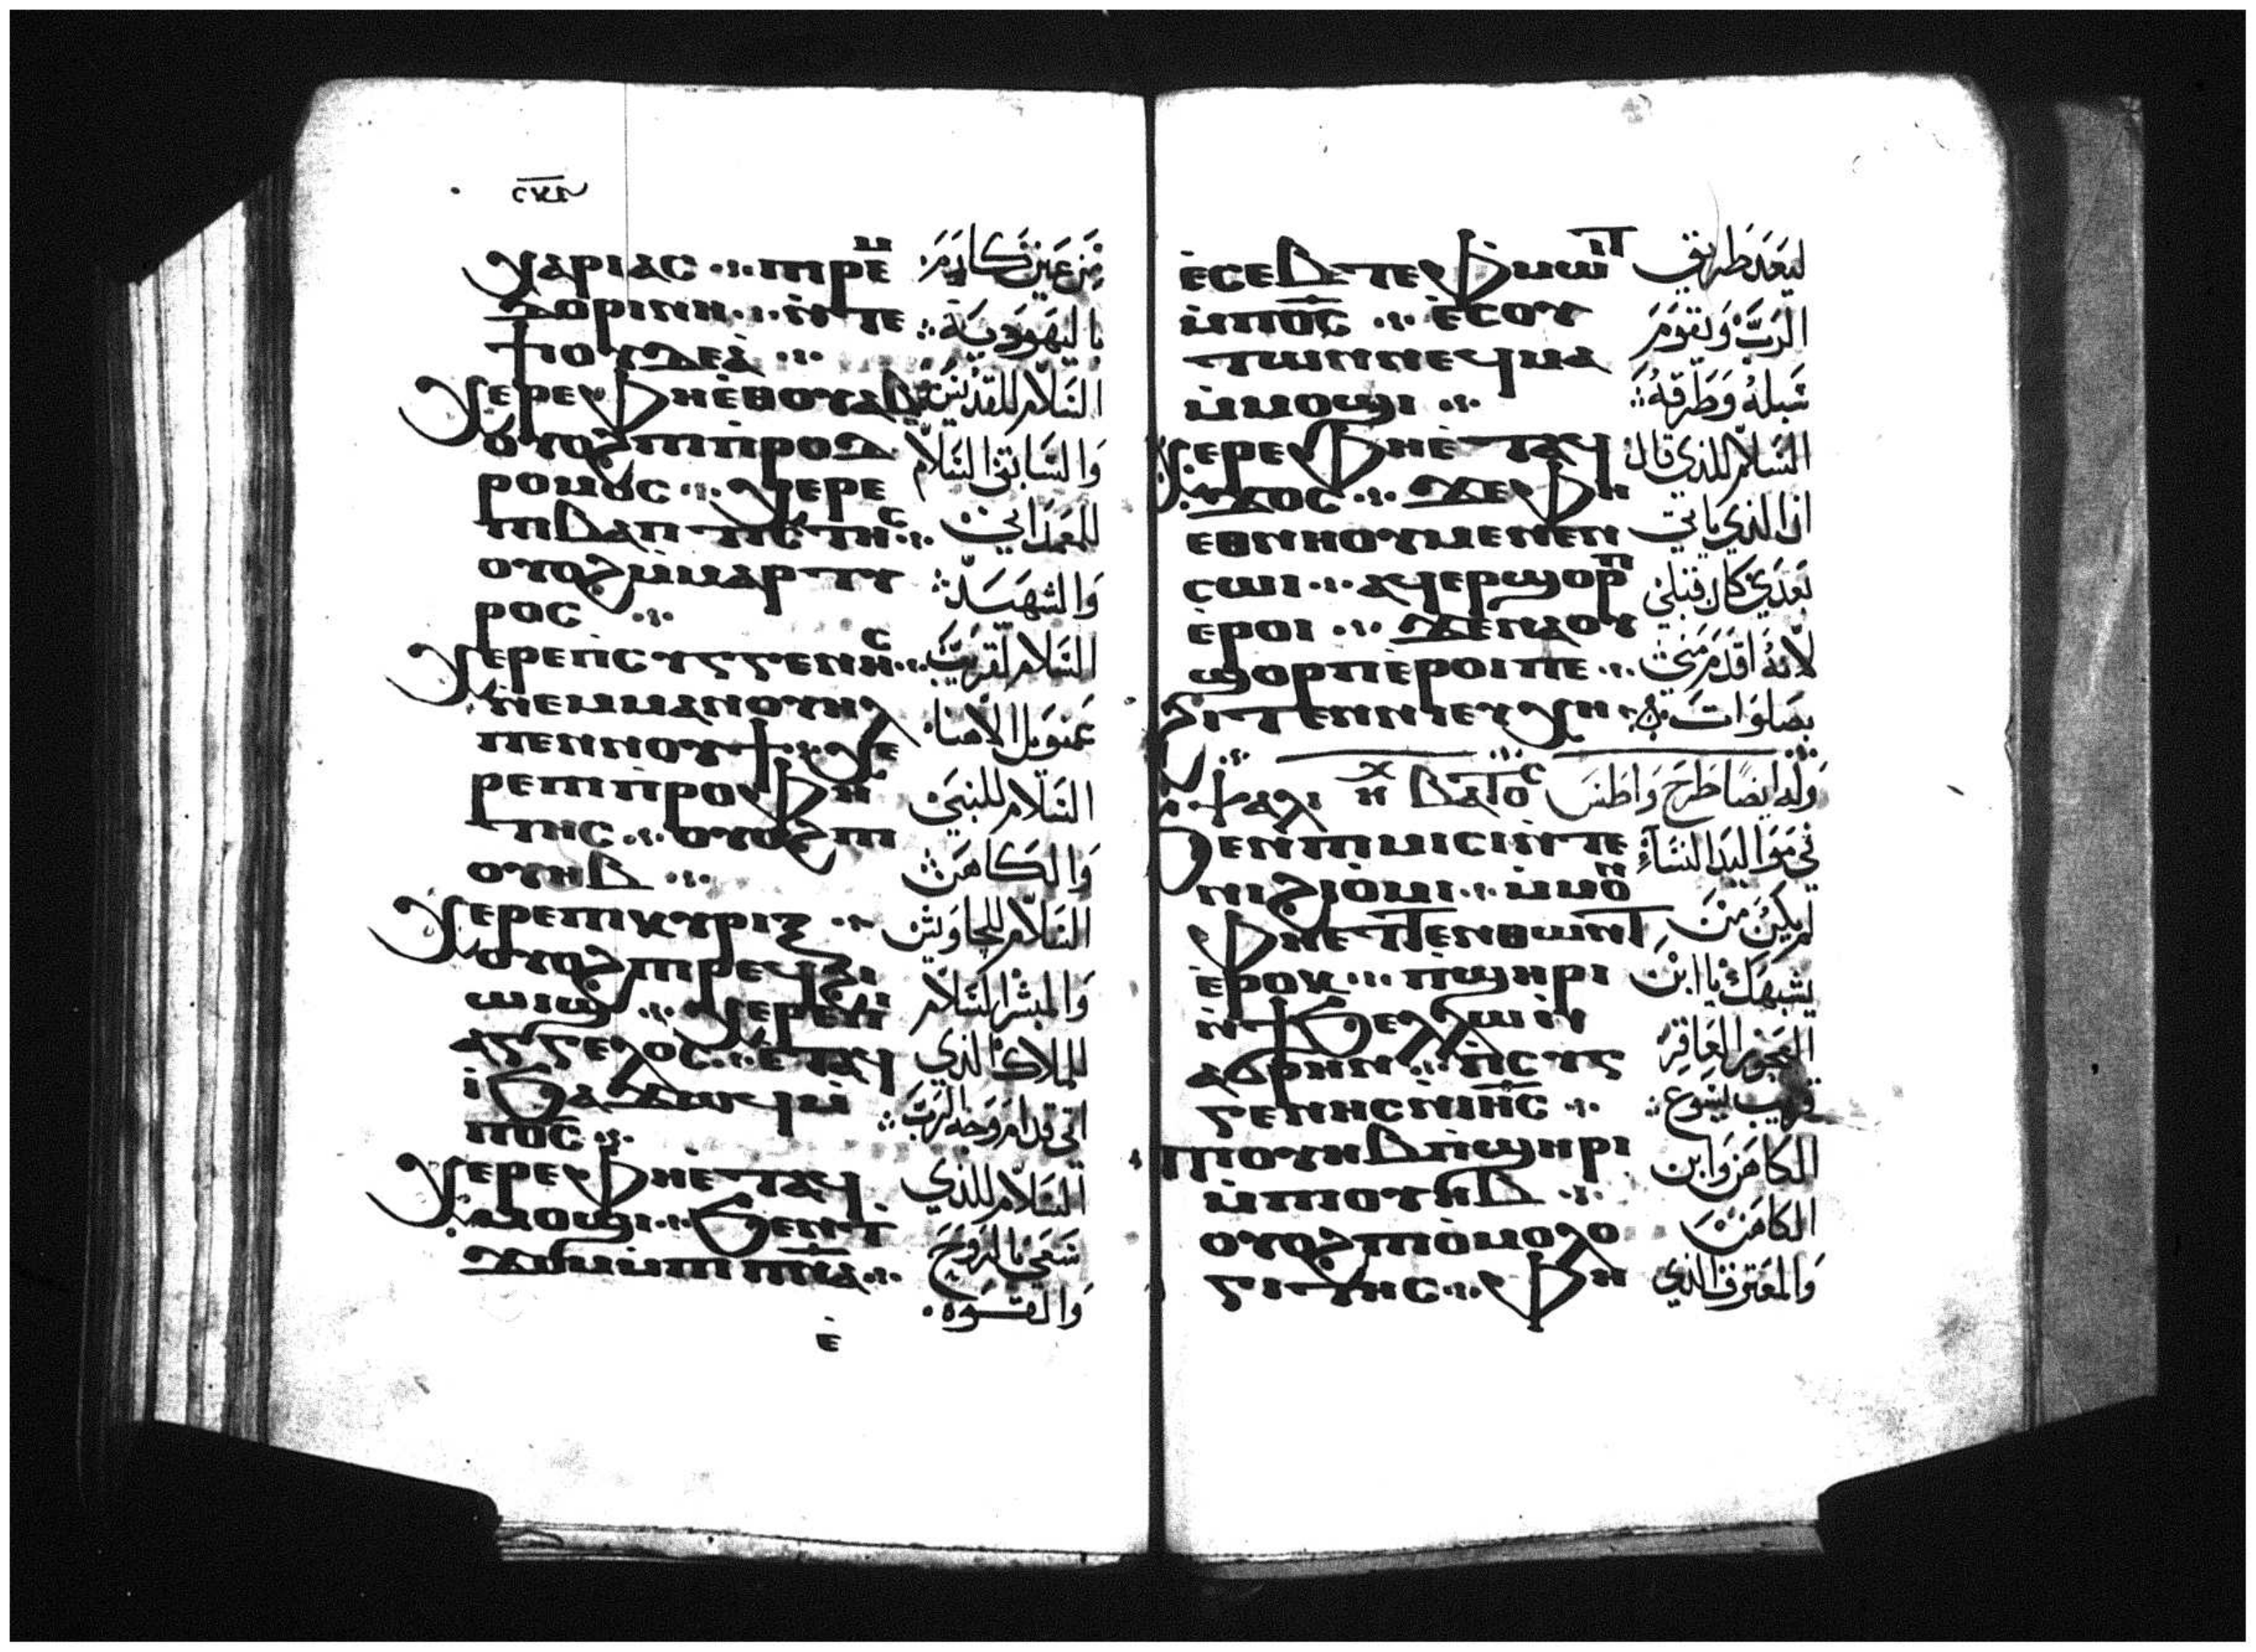 ⲥ̅ⲕ̅ⲍ̅
ⲭⲁⲣⲓⲁⲥ ⲡⲓⲣⲉⲙ
ⲇⲟⲣⲓⲛⲏ ⲛ̀ⲧⲉ
ϯⲟⲩⲇⲉⲁ̀
ⲭⲉⲣⲉ ⲫⲏⲉ̀ⲑⲟⲩⲁⲃ
ⲟⲩⲟϩ ⲡⲓⲡ̀ⲣⲟⲇ
ⲣⲟⲙⲟⲥ ⲭⲉⲣⲉ
ⲡⲓⲃⲁⲡⲧⲓⲥⲧⲏⲥ
ⲟⲩⲟϩ ⲙ̀ⲙⲁⲣⲧⲩ
ⲣⲟⲥ
ⲭⲉⲣⲉ ⲡ̀ⲥⲩⲅⲅⲉⲛⲏⲥ
ⲛ̀ⲉⲙⲙⲁⲛⲟⲩⲏⲗ
ⲡⲉⲛⲛⲟⲩϯ ⲭⲉ
ⲣⲉ ⲡⲓⲡ̀ⲣⲟⲫⲏ
ⲧⲏⲥ ⲟⲩⲟϩ ⲡⲓ
ⲟⲩⲏⲃ
ⲭⲉⲣⲉ ⲡⲓⲕⲩⲣⲓⲝ
ⲟⲩⲟϩ ⲡⲓⲣⲉϥϩⲓ
ⲱⲓϣ ⲭⲉⲣⲉ ⲡⲓ
ⲁⲅⲅⲉⲗⲟⲥ ⲉⲧⲁϥ
ⲓ̀ ϧⲁϫⲱϥ ⲙ̀
ⲡⲟ̅ⲥ̅
ⲭⲉⲣⲉ ⲫⲏⲉ̀ⲧⲁϥ
ⲙⲟϣⲓ ϧⲉⲛ ϯ
ϫⲟⲙ ⲙ̀ⲡⲓⲡ̅ⲛ̅ⲁ̅
ⲉ̀
من عين كارم
باليهودية
السلام للقديس
والسابق السلام
للمعمداني
والشهيد
السلام لقريب
عمنويل الاهنا
السلام للنبي
والكاهن
السلام
والمبشر السلام
للملاك الذي
اتي قدام وجه الرب
السلام للذي
سعي بالروح
والقوه
ⲉ̀ⲥⲉⲃⲧⲉ ⲫ̀ⲙⲱⲓⲧ
ⲙ̀ⲡⲟ̅ⲥ̅ ⲉ̀ⲥⲟⲩ
ⲧⲱⲛ ⲛⲉϥⲙⲁ
ⲙ̀ⲙⲟϣⲓ
ⲭⲉⲣⲉ ⲫⲏⲉ̀ⲧⲁϥ
ϫⲟⲥ ϫⲉ ⲫⲏ
ⲉⲑⲛⲏⲟⲩ ⲙⲉⲛⲉⲛ
ⲥⲱⲓ ⲁϥⲉⲣϣⲟⲣⲡ
ⲉ̀ⲣⲟⲓ ϫⲉ ⲛⲁⲟⲩ
ϣⲟⲣⲡ ⲉ̀ⲣⲟⲓ ⲡⲉ
ϩⲓⲧⲉⲛ ⲛⲓⲉⲩⲭⲏ
ⲯⲁⲗⲓ ⲏⲭ ⲃⲁⲧⲟⲥ
ϧⲉⲛ ⲡⲓⲙⲓⲥⲓ ⲛ̀ⲧⲉ
ⲛⲓϩⲓⲟ̀ⲙⲓ ⲙ̀ⲙⲟⲛ
ⲫⲏ ⲉⲧⲧⲉⲛⲑⲱⲛⲧ
ⲉ̀ⲣⲟⲕ ⲡ̀ϣⲏⲣⲓ
ⲛ̀ϯϧⲉⲗⲗⲱ ⲛ̀
ⲁϭⲣⲏⲛ ⲡ̀ⲥⲩⲅ
ⲅⲉⲛⲏⲥ ⲛ̀ⲓⲏ̅ⲥ̅
ⲡⲓⲟⲩⲏⲃ ⲡ̀ϣⲏⲣⲓ
ⲙ̀ⲡⲓⲟⲩⲏⲃ
ⲟⲩⲟϩ ⲡⲓⲟ̀ⲙⲟⲗⲟ
ⲅⲓⲧⲏⲥ ⲫⲏ
ليعد طريق
الرب ويقوم
سبله وطرقه
السلام للذي قال
ان الذي ياتي
بعدي كان قبلي
لانه اقدم مني
بصلوات
وله ايضا طرح واطس
في مواليد النساء
لم يكن من
يشبهك يا ابن
العجوز العاقر
قريب يسوع
الكاهن وابن
الكاهن
والمعترف الذي